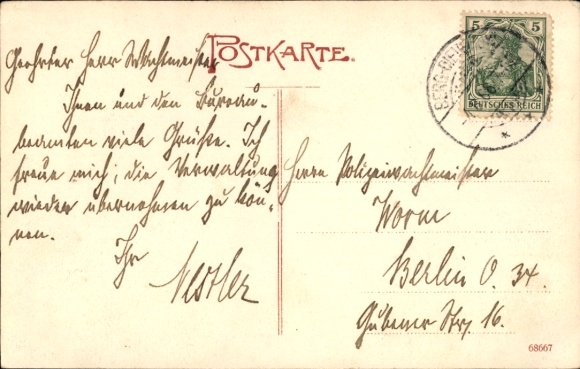 POSTKARTE.
Geehrter Herr Wachtmeister
Ihnen und den Bureau-
beamten viele Grüße. Ich
freue mich, die Verwaltung
wieder übernehmen zu kön-
nen.
Ihr
Nestler
5 5
DEUTSCHES REICH
Herrn Polizeiwachtmeister
Worm
Berlin O. 34.
Gubener Str. 16.
68667